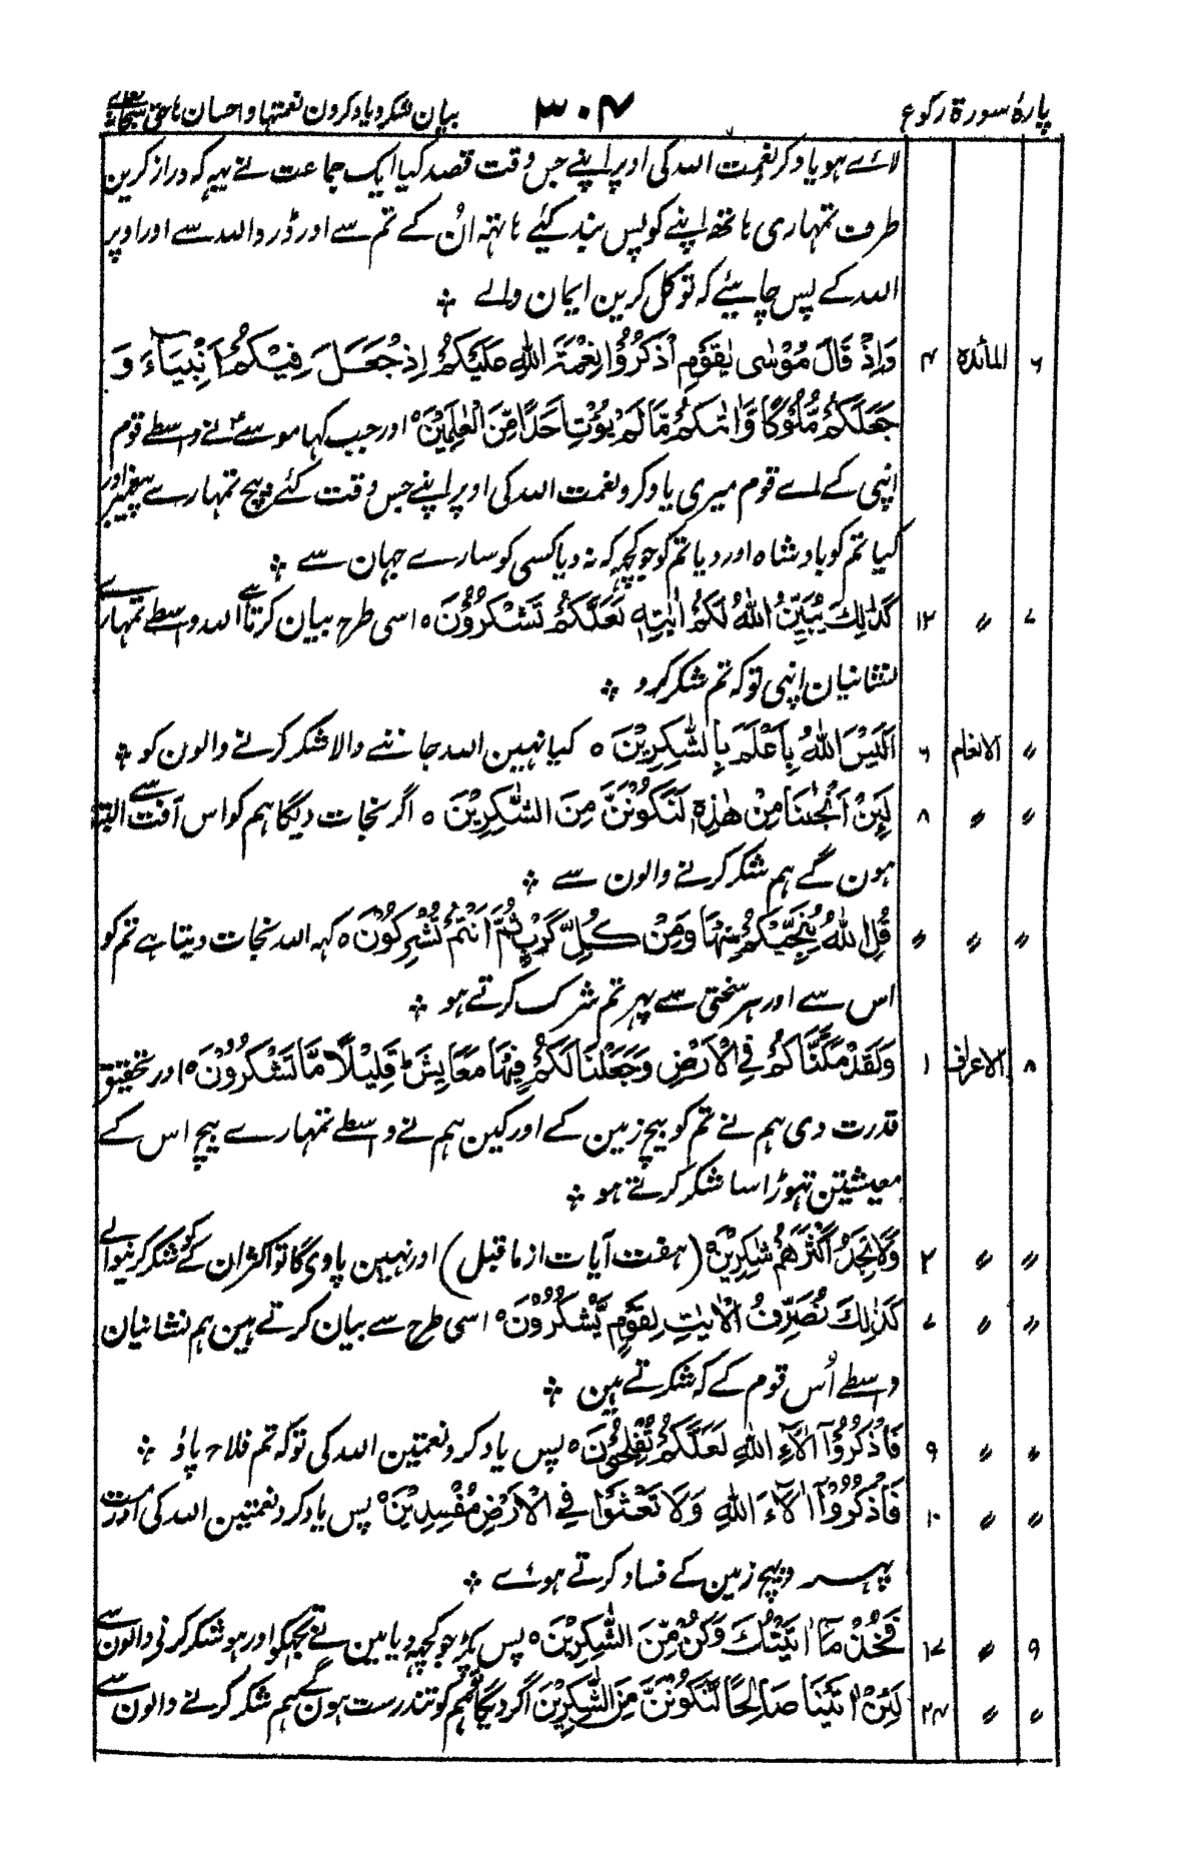 پارۂ سورۃ رکوع ۳۰۴ بیان شکر و یاد کردن نعمتہا و احسان ہائے حق سبحانہ تعالیٰ
لائے ہو یاد کرو نعمت اللہ کی اوپر اپنے جس وقت قصد کیا ایک جماعت نے یہہ کہ دراز کرین
طرف تمہاری ہاتھ اپنے کو پس بند کیئے ہاتہہ اُن کے تم سے اور ڈرو اللہ سے اور اوپر
اللہ کے پس چاہیئے کہ توکل کرین ایمان والے ؞
۶ المائدہ ۴ وَاِذْ قَالَ مُوْسٰی یٰقَوْمِ اذْکُرُوْا نِعْمَۃَ اللّٰہِ عَلَیْکُمْ اِذْ جَعَلَ فِیْکُمْ اَنْۢبِیَآءَ وَ
جَعَلَکُمْ مُّلُوْکًا وَّاٰتٰىکُمْ مَّا لَمْ یُؤْتِ اَحَدًا مِّنَ الْعٰلَمِیْنَ ہ اور جب کہا موسےٰ نے واسطے قوم
اپنی کے اے قوم میری یاد کرو نعمت اللہ کی اوپر اپنے جس وقت کئے بیچ تمہارے پیغمبر اور
کیا تم کو بادشاہ اور دیا تم کو جو کچہہ کہ نہ دیا کسی کو سارے جہان سے ؞
۷ 〃 ۱۲ کَذٰلِکَ یُبَیِّنُ اللّٰہُ لَکُمْ اٰیٰتِہٖ لَعَلَّکُمْ تَشْکُرُوْنَ ہ اسی طرح بیان کرتا ہے اللہ واسطے تمہارے
نشانیان اپنی توکہ تم شکر کرو ؞
〃 الانعام ۶ اَلَیْسَ اللّٰہُ بِاَعْلَمَ بِالشّٰکِرِیْنَ ہ کیا نہین اللہ جاننے والا شکر کرنے والون کو ؞
〃 〃 ۸ لَئِنْ اَنْجٰىنَا مِنْ ھٰذِہٖ لَنَکُوْنَنَّ مِنَ الشّٰکِرِیْنَ ہ اگر نجات دیگا ہم کو اس آفت سے البتہ
ہون گے ہم شکر کرنے والون سے ؞
〃 〃 〃 قُلِ اللّٰہُ یُنَجِّیْکُمْ مِّنْہَا وَمِنْ کُلِّ کَرْبٍ ثُمَّ اَنْتُمْ تُشْرِکُوْنَ ہ کہہ اللہ نجات دیتا ہے تم کو
اس سے اور ہر سختی سے پہر تم شرک کرتے ہو ؞
۸ الاعراف ۱ وَلَقَدْ مَکَّنّٰاکُمْ فِی الْاَرْضِ وَجَعَلْنَا لَکُمْ فِیْہَا مَعَایِشَ ؕ قَلِیْلًا مَّا تَشْکُرُوْنَ ہ اور تحقیق
قدرت دی ہم نے تم کو بیچ زمین کے اور کین ہم نے واسطے تمہارے بیچ اس کے
معیشتین تہوڑا سا شکر کرتے ہو ؞
〃 〃 ۲ وَلَا تَجِدُ اَکْثَرَھُمْ شٰکِرِیْنَ ہ (ہفت آیات از ماقبل) اور نہین پاویگا تو اکثر ان کے کو شکر کرنیوالے
〃 〃 ۷ کَذٰلِکَ نُصَرِّفُ الْاٰیٰتِ لِقَوْمٍ یَّشْکُرُوْنَ ہ اسی طرح سے بیان کرتے ہین ہم نشانیان
واسطے اُس قوم کے کہ شکر کرتے ہین ؞
〃 〃 ۹ فَاذْکُرُوْٓا اٰلَآءَ اللّٰہِ لَعَلَّکُمْ تُفْلِحُوْنَ ہ پس یاد کرو نعمتین اللہ کی توکہ تم فلاح پاؤ ؞
〃 〃 ۱۰ فَاذْکُرُوْٓا اٰلَآءَ اللّٰہِ وَلَا تَعْثَوْا فِی الْاَرْضِ مُفْسِدِیْنَ ہ پس یاد کرو نعمتین اللہ کی اور مت
پہرو بیچ زمین کے فساد کرتے ہوئے ؞
۹ 〃 ۱۷ فَخُذْ مَآ اٰتَیْتُکَ وَکُنْ مِّنَ الشّٰکِرِیْنَ ہ پس پکڑ جو کچہہ دیا مین نے تجہکو اور ہو شکر کرنی والون سے
〃 〃 ۲۴ لَئِنْ اٰتَیْتَنَا صَالِحًا لَّنَکُوْنَنَّ مِنَ الشّٰکِرِیْنَ اگر دیگا تو ہم کو تندرست ہون گے ہم شکر کرنے والون سے